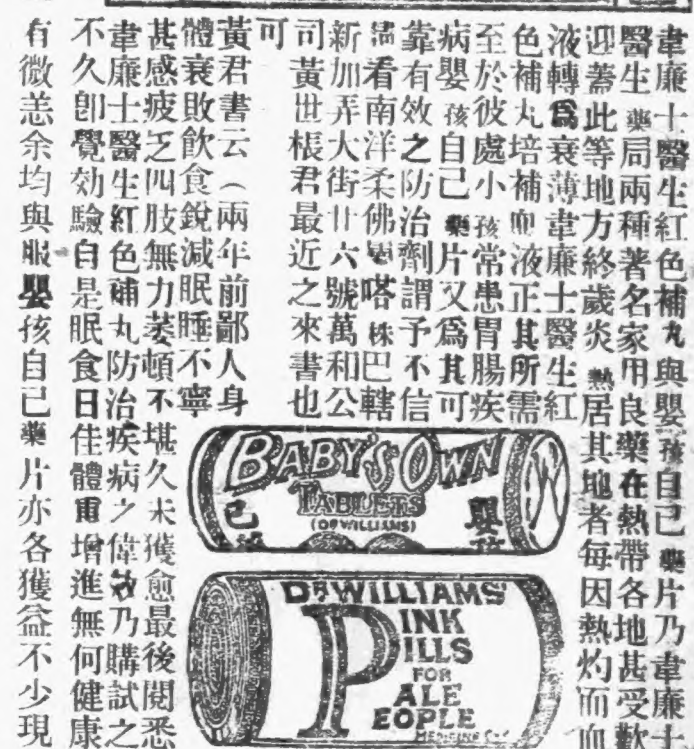 韋廉士醫生紅色補丸與嬰孩自己藥片乃韋廉士
醫生藥局兩種著名家用良藥在熱帶各地甚受歡
迎蓋此等地方終歲炎熱居其地者每因熱灼而血
液轉爲衰薄韋廉士醫生紅
色補丸培補血液正其所需
至於彼處小孩常患胃腸疾
病嬰孩自己藥片又爲其可
靠有效之防治劑謂予不信
請看南洋柔佛屬嗒株巴轄
新加弄大街廿六號萬和公
司黃世棖君最近之來書也
可
黃君書云（兩年前鄙人身
體衰敗飲食銳減眠睡不寧
甚感疲乏四肢無力萎頓不堪久未獲愈最後閱悉
韋廉士醫生紅色補丸防治疾病之偉效乃購試之
不久卽覺効驗自是眠食日佳體重增進無何健康
有微恙余均與服嬰孩自己藥片亦各獲益不少現
BABY'S OWN
TABLETS
(DR WILLIAMS)
嬰孩
己
DR WILLIAMS'
PINK
PILLS
FOR
PALE
PEOPLE